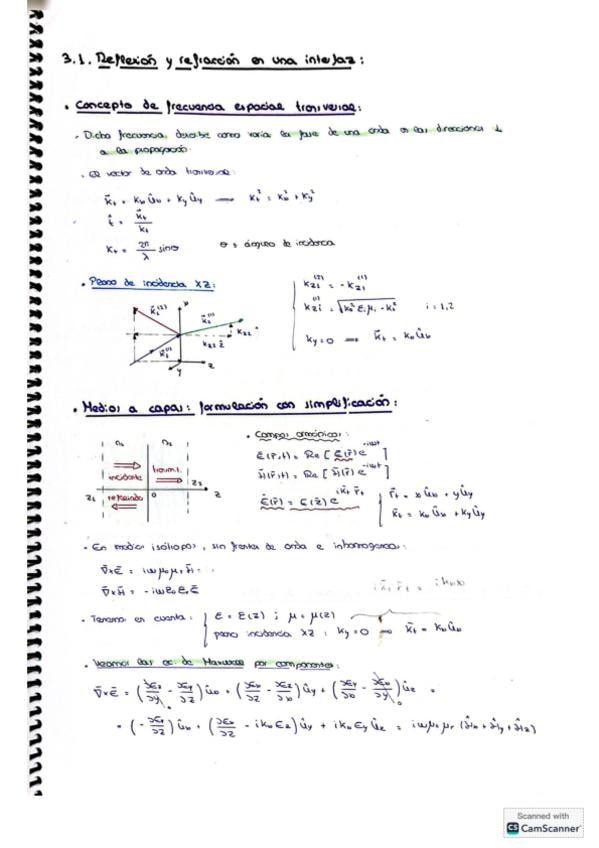 3.1. Reflexión y refracción en una interfaz:
• Concepto de frecuencia espacial transversal:
• Dicha frecuencia describe como varía la fase de una onda en las direcciones ⊥
a la propagación.
• El vector de onda transversal:
k̄t = kx ûx + ky ûy → kt² = kx² + ky²
t̂ = k̄t / kt
kt = 2π/λ sinθ θ ≡ ángulo de incidencia
• Plano de incidencia XZ:
kz1⁽²⁾ = - kz1⁽¹⁾
kzi⁽¹⁾ = √(k0² εi μi - kt²) i = 1,2
ky = 0 ⟹ k̄t = kx ûx
x
k̄1⁽²⁾
k̄2⁽¹⁾
k̄1⁽¹⁾
kz2 ẑ
y
z
• Medios a capas: formulación con simplificación:
n1 n2
incidente
transmi.
reflejado
z1 0 z2 z
• Campos armónicos:
ε̄(r̄,t) = Re [ E̅(r̄) e^-iωt ]
H̄(r̄,t) = Re [ H̄(r̄) e^-iωt ]
E̅(r̄) = E̅(z) e^i k̄t r̄t
r̄t = x ûx + y ûy
k̄t = kx ûx + ky ûy
• En medios isótropos, sin fuentes de onda e inhomogéneos:
∇̄×E̅ = iωμ0μrH̄
∇̄×H̄ = -iωε0εrE̅
i k̄t r̄t = i kx x
• Tenemos en cuenta: ε = ε(z) ; μ = μ(z)
plano incidencia XZ : ky = 0 ⟹ k̄t = kx ûx
• Veamos las ec de Maxwell por componentes:
∇̄×E̅ = (∂Ez/∂y - ∂Ey/∂z) ûx + (∂Ex/∂z - ∂Ez/∂x) ûy + (∂Ey/∂x - ∂Ex/∂y) ûz =
= (-∂Ey/∂z) ûx + (∂Ex/∂z - ikxEz) ûy + ikxEy ûz = iωμ0μr (Hx + Hy + Hz)
Scanned with
CS CamScanner